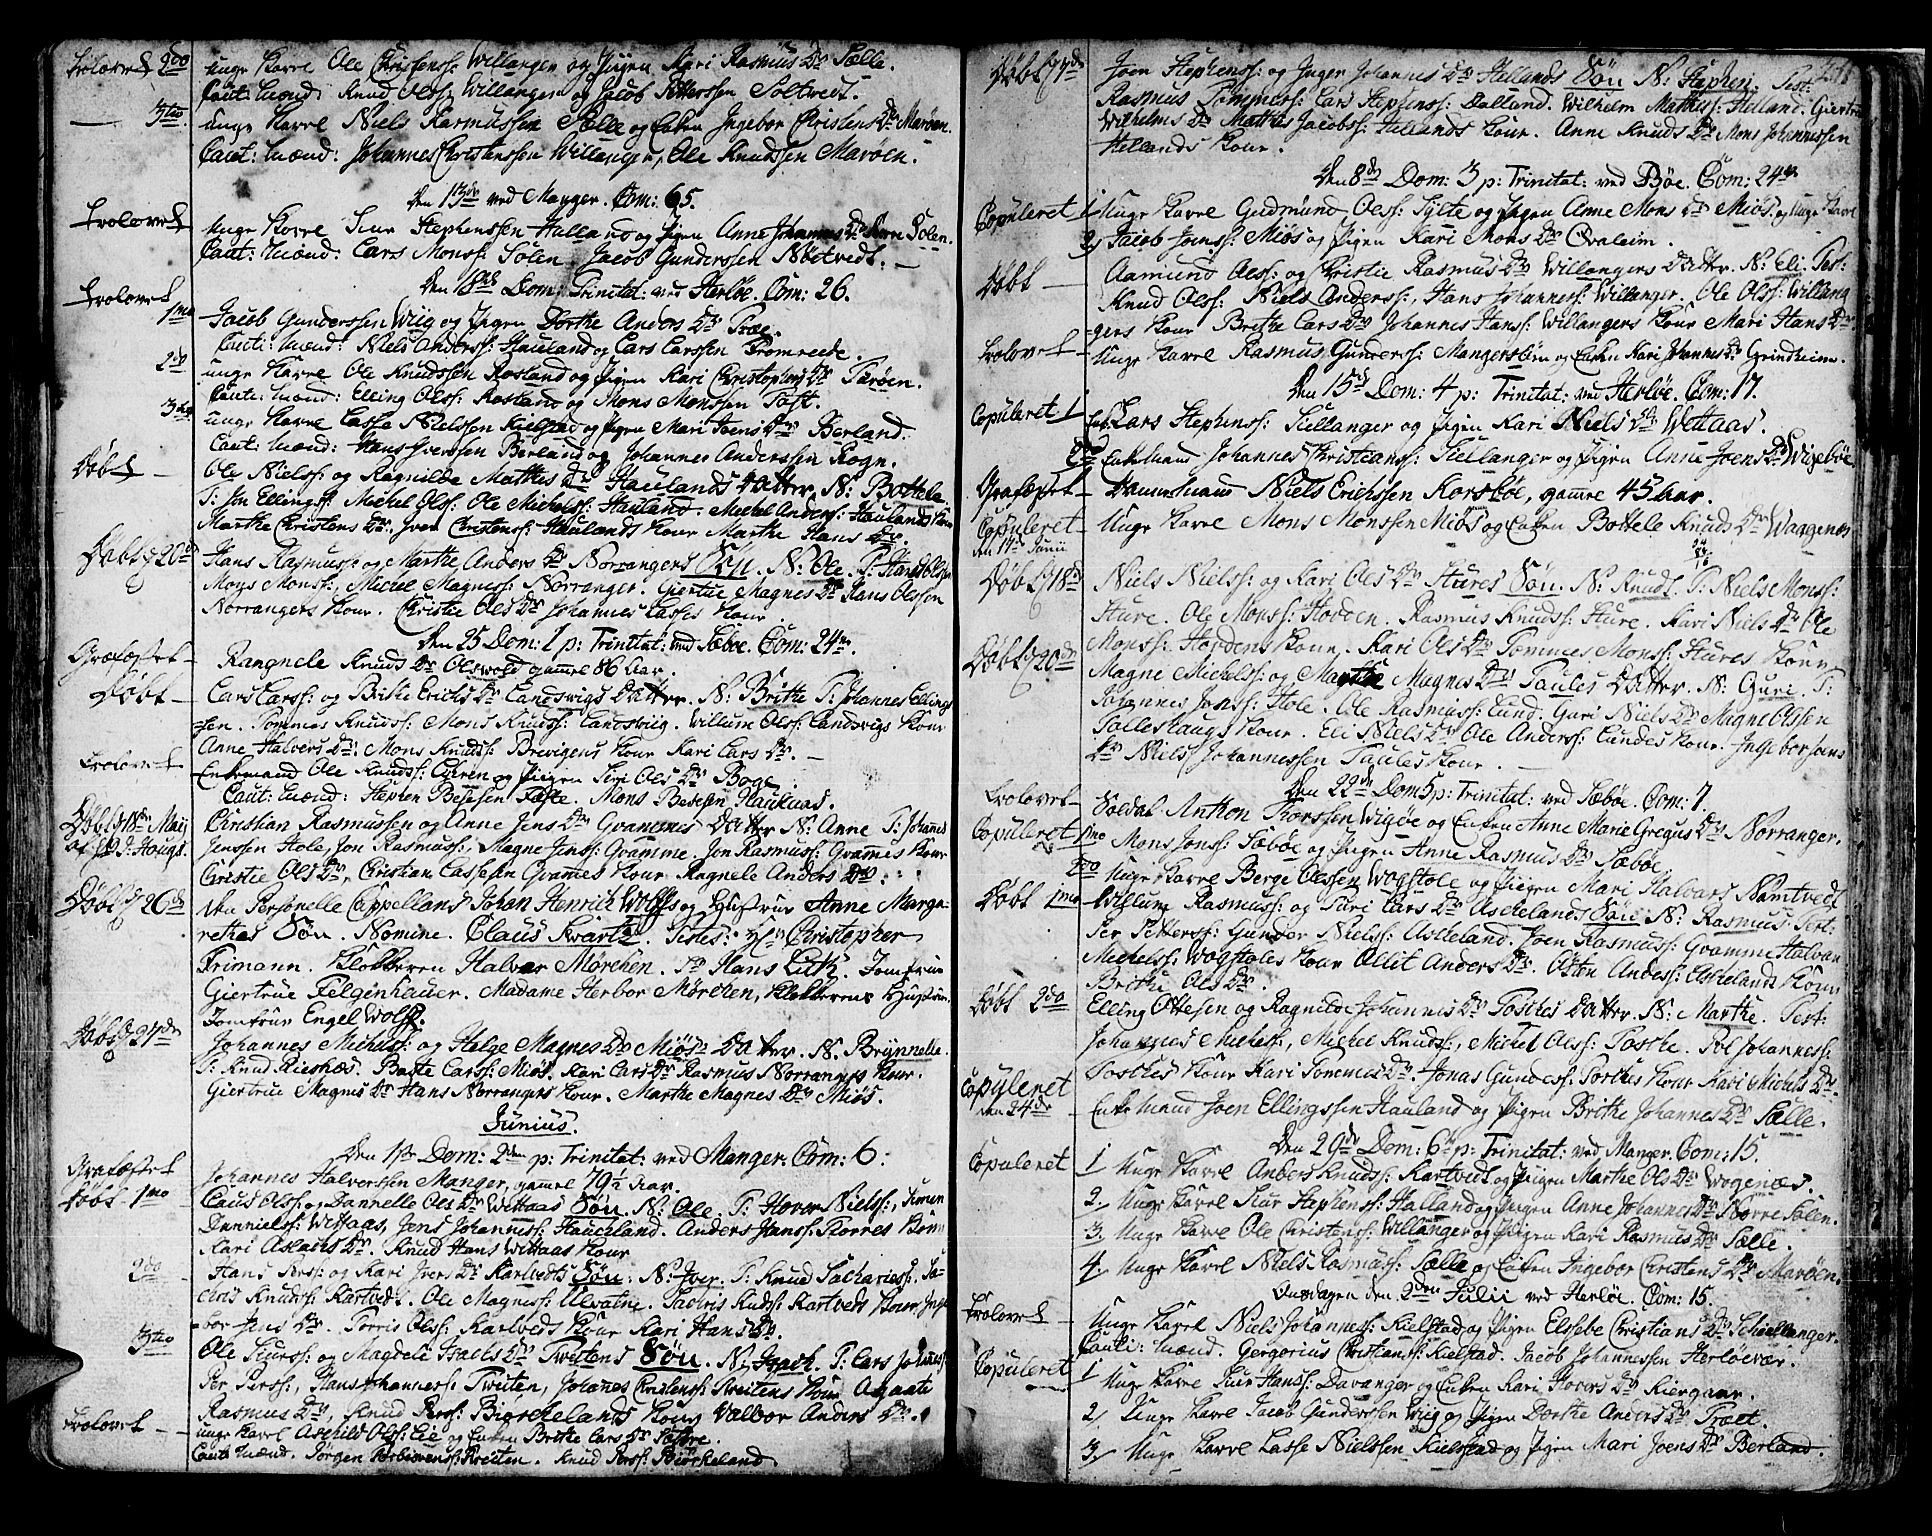 Trolovet 2do unge Karl Ole Christenss: Willanger og Pigen Kari Rasmus Dr Sælle.
Caut: Mænd: Knud Olss: Willanger og Jacob Pettersen Soltvedt.
— 3tio unge Karl Niels Rasmussen Sælle og Enken Ingebor Christens Dr Marøen.
Caut: Mænd: Johannes Christenssen Willanger, Ole Knudssen Marøen.
Den 13de ved Manger. Com: 65.
Trolovet Unge Karl Siur Stephenssen Halland og Pigen Anne Johannes Dr Nere Solen.
Caut: Mænd: Lars Monss: Solen Jacob Gunderssen Nøtvedt. —
Den 18de Dom: Trinitat: ved Herløe. Com: 26.
Trolovet 1mo Jacob Gunderssen Wiig og Pigen Dorthe Anders Dr Træe.
Caut: Mænd: Niels Anderss: Hauland og Lars Larssen Fromreede.
2do unge Karl Ole Knudssen Rosland og Pigen Kari Christophers Dr Tarøen.
Caut: Mænd: Elling Olss: Rosland og Mons Monssen Toft.
3tio unge Karl Lasse Nielssen Kielstad og Pigen Mari Joens Dr Berland.
Caut: Mænd: Hans Iverssen Berland og Johannes Anderssen Rogn.
Døbt — Ole Nielss: og Ragnilde Mathis Dr Haulands Datter. N: Bottele
T: Jon Ellings: Michel Olss: Ole Michelss: Hauland. Michel Anders: Haulands Kone
Marthe Christens Dr. Iver Christenss: Haulands Kone Marthe Hans Dr.
Døbt d 20de Hans Rasmuss: og Marthe Anders Dr Norrangers Søn. N: Ole. T: Hans Olssen
Mons Monss: Michel Magness: Norranger. Giertrue Magnes Dr Hans Olssen
Norrangers Kone. Christie Ols Dr Johannes Lasses Kone
Den 25 Dom: 1 p: Trinitat: ved Sæbøe. Com: 24.
Græfæstet — Rangnele Knuds Dr Olswold gamel 86 Aar.
Døbt — Lars Larss: og Brithe Erichs Dr Landswigs Datter. N: Brithe T: Johannes Ellings
sen. Tommas Knuds: Mons Knuds: Landswig. Willum Olss: Landswigs Kone
Anne Halvers Dr. Mons Knuds: Brevigens Kone Kari Lars Dr. —
Trolovet Enkemand Ole Knuds: Cheren og Pigen Siri Ols Dr Boge
Caut: Mænd: Stephen Besesen Fæste. Mons Besesen Haukaas.
Døbt d 18de Maij Christian Rasmussen og Anne Jens Dr Gvammes Datter N: Anne T: Johannes
af Hr P. Hougs. Jenssen Hole, Jon Rasmus: Magne Jenss: Gvamme. Jon Rasmuss: Gvammes Kone
Christie Ols Dr, Christian Lassesen Gvammes Kone Ragnele Anders Dr.
Døbt d 26de den Personelle Cappelland Johan Henrich Wolffs og Hustrue Anne Marga-
rethes Søn. Nomine. Claus Swartz. Testes: Hr Christopher
Frimann. Klokkeren Halvor Mørchen. Sr Hans Luth. Jomfrue
Giertrue Felgenhauer. Madame Herbor Mørchen, Klokkerens Hustrue
Jomfrue Engel Wolff.
Døbt d 27de Johannes Michels: og Helge Magnes Dr Miøs Datter. N. Brynnelle
T: Knud Rieshæs. Baste Larss: Miøs. Kari Lars Dr Rasmus Norrannes Kone.
Giertrue Magnes Dr Hans Norrangers Kone. Marthe Magnes Dr Miøs.
Junius.
Den 1ste Dom: 2den p: Trinitat: ved Manger. Com: 6.
Græfæstet Johannes Halverssen Manger, gamel 79½ Aar.
Døbt 1mo Claus Olss: og Dannelle Ols Dr Wettaas Søn. N: Ole. T: Hover Nielss:, Simen
Danniels: Wettaas, Jens Johanniss: Haugeland. Anders Janss: Torres Kone
Kari Aslachs Dr. Knud Hans Wettaas Kone
2do Hans Perss: og Kari Ivers Dr Kartvedts Søn. N: Iver. T: Knud Sachariess. Sa-
charis Knuds: Kartvedt. Ole Magness: Ulvatne. Sacris Knuds: Kartveds Kone, Inge
bor Jens Dr. Torris Olss: Kartveds Kone Kari Hans Dr.
3tio Ole Siurss: og Magdeli Isachs Dr Tweitens Søn. N: Isach. T: Lars Johannes:
Per Perss:, Hans Johanness: Tweiten, Johanes Christenss: Tweitens Kone Agaate
Rasmus Dr, Knud Perss: Biørckelands Kone Valbor Anders Dr.
Trolovet unge Karl Aschild Olss: Lie og Enken Brithe Lars Dr Sætre.
Caut: Mænd. Jørgen Torbiørnss: Tweiten. Knud Perss: Biørkeland
Døbt d 7de Joen Stephenss: og Inger Johannes Dr Hellands Søn N: Stephen. Test:
Rasmus Tommess: Lars Stephenss: Dalland. Wilhelm Mathiss: Helland. Giertrue
Wilhelms Dr Mathis Jacobss: Hellands Kone. Anne Knuds Dr Mons Johannessen
Hellands Kone.
Den 8de Dom: 3 p: Trinitat: ved Bøe. Com: 24
Copuleret 1 Unge Karl Gudmund Olss: Sylte og Pigen Anne Mons Dr Miøs og Unge Karl
2 Jacob Joenss: Miøs og Pigen Kari Mons Dr Qvaleim.
Døbt — Aamund Olss: og Christie Rasmus Dr Willangers Datter. N: Eli. Test:
Knud Olss: Niels Anderss:, Hans Johanness: Willanger. Ole Olss: Willang
gers Kone Brithe Lars Dr Johannes Hanss: Willangers Kone Mari Hans Dr
Trolovet — Unge Karl Rasmus Gunders: Mangersbøen og Enken Kari Johannes Dr Grindheim.
Den 15de Dom: 4 p: Trinitat: ved Herløe. Com: 17.
Copuleret 1 Lars Stephenss: Skellanger og Pigen Kari Niels Dr Wettaas.
2 Enkemand Johannes Christianss: Skellanger og Pigen Anne Joens Dr Wigebøe
Græfæstet — Dannemand Niels Erichssen Korsbøe, gamle 45 Aar.
Copuleret den 17de Junii Unge Karl Mons Monssen Miøs og Enken Bottele Knuds Dr Waagenes
Døbt d 18de Niels Nielss: og Kari Ols Dr Stures Søn. N: Knud. T: Niels Monss:
Sture. Ole Monss: Hodden. Rasmus Knuds: Sture. Kari Niels Dr Ole
Monss: Hoddens Kone. Kari Ols Dr Tommes Monss: Stures Kone —
Døbt d 20de Magne Michels: og Marthe Magnes Dr Taules Datter. N: Guri. T:
Johannes Jonss: Hole. Ole Rasmuss: Lund. Guri Niels Dr Magne Olssen
Talleshaugs Kone. Eli Niels Dr Ole Anderss: Lundes Kone. Ingebor Jans
Dr Niels Johannessen Taules Kone.
Den 22de Dom 5 p: Trinitat: ved Sæbøe. Com: 7.
Trolovet — Soldat Anthon Thorssen Wigøe og Enken Anne Marie Gregus Dr Norranger.
Copuleret 1mo Mons Jons: Sæbøe og Pigen Anne Rasmus Dr Sæbøe.
2do Unge Karl Berge Olssen Wogstole og Pigen Mari Halvars Namtvedt
Døbt 1mo Willum Rasmus: og Siri Lars Dr Askelands Søn N: Rasmus. Test:
Per Petterss: Gunder Nielss: Askeland. Joen Rasmus: Gvamme Halvar
Michelss: Wogstoles Kone Ollit Anders Dr. Østen Anders: Askelands Kone
Brithe Ols Dr.
Døbt 2do Elling Ottesen og Ragnilde Johannes Dr Toskes Datter. N: Marthe. Test:
Johannes Michels:, Michel Knuds:, Michel Olss: Toske. Pol Johanness:
Toskes Kone Kari Tommes Dr. Jonas Gundess: Toskes Kone Kari Michels Dr.
Copuleret den 24de Enkemand Joen Ellingssen Hauland og Pigen Brithe Johannes Dr Sælle.
Den 29de Dom: 6te p: Trinitat: ved Manger. Com: 15.
Copuleret 1 Unge Karl Anders Knuds: Kartvedt og Pigen Marthe Ols Dr Wogenæs.
2. Unge Karl Siur Stephenss: Halland og Pigen Anne Johannes Dr Norre Solen.
3. Unge Karl Ole Christenss: Willanger og Pigen Kari Rasmus Dr Sælle.
4. Unge Karl Niels Rasmuss: Sælle og Enken Ingebor Christens Dr Marøen.
Onsdagen den 2den Julii ved Herløe. Com: 15.
Trolovet — Unge Karl Niels Johanness: Kielstad og Pigen Elssebe Christians Dr Schiellanger.
Cauti: Mænd. Gergorius Christianss: Kielstad. Jacob Johannessen Herløevær.
Copuleret 1 Unge Karl Siur Hanss: Davanger og Enken Kari Hovers Dr Kiergaar.
2. Unge Karl Jacob Gunderssen Wiig og Pigen Dorthe Anders Dr Træet.
3. Unge Karl Lasse Nielssen Kielstad og Pigen Mari Joens Dr Berland.